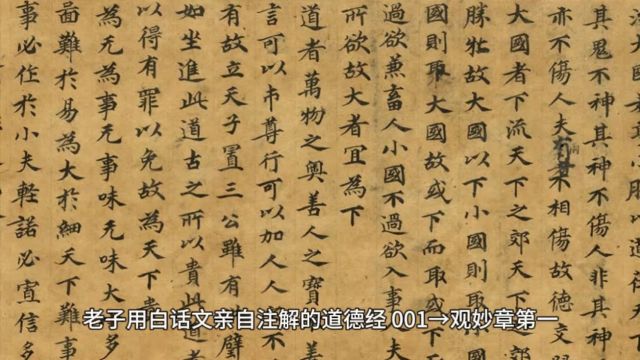 其鬼不神其神不傷人非其神
亦不傷人夫不相傷故德交
大國者下流天下之郊天下
勝牡故大國以下小國則取
國則取大國故或下而取或
過欲兼畜人小國不過欲入事
所欲故大者宜為下
道者萬物之奧善人之寶
言可以市尊行可以加人人
有故立天子置三公雖有璧
如坐進此道古之所以貴此
以得有罪以免故為天下貴
為无為事无事味无味大
啚難於易為大於細天下
事必作於小夫輕諾必寡信多
老子用白话文亲自注解的道德经 001→观妙章第一